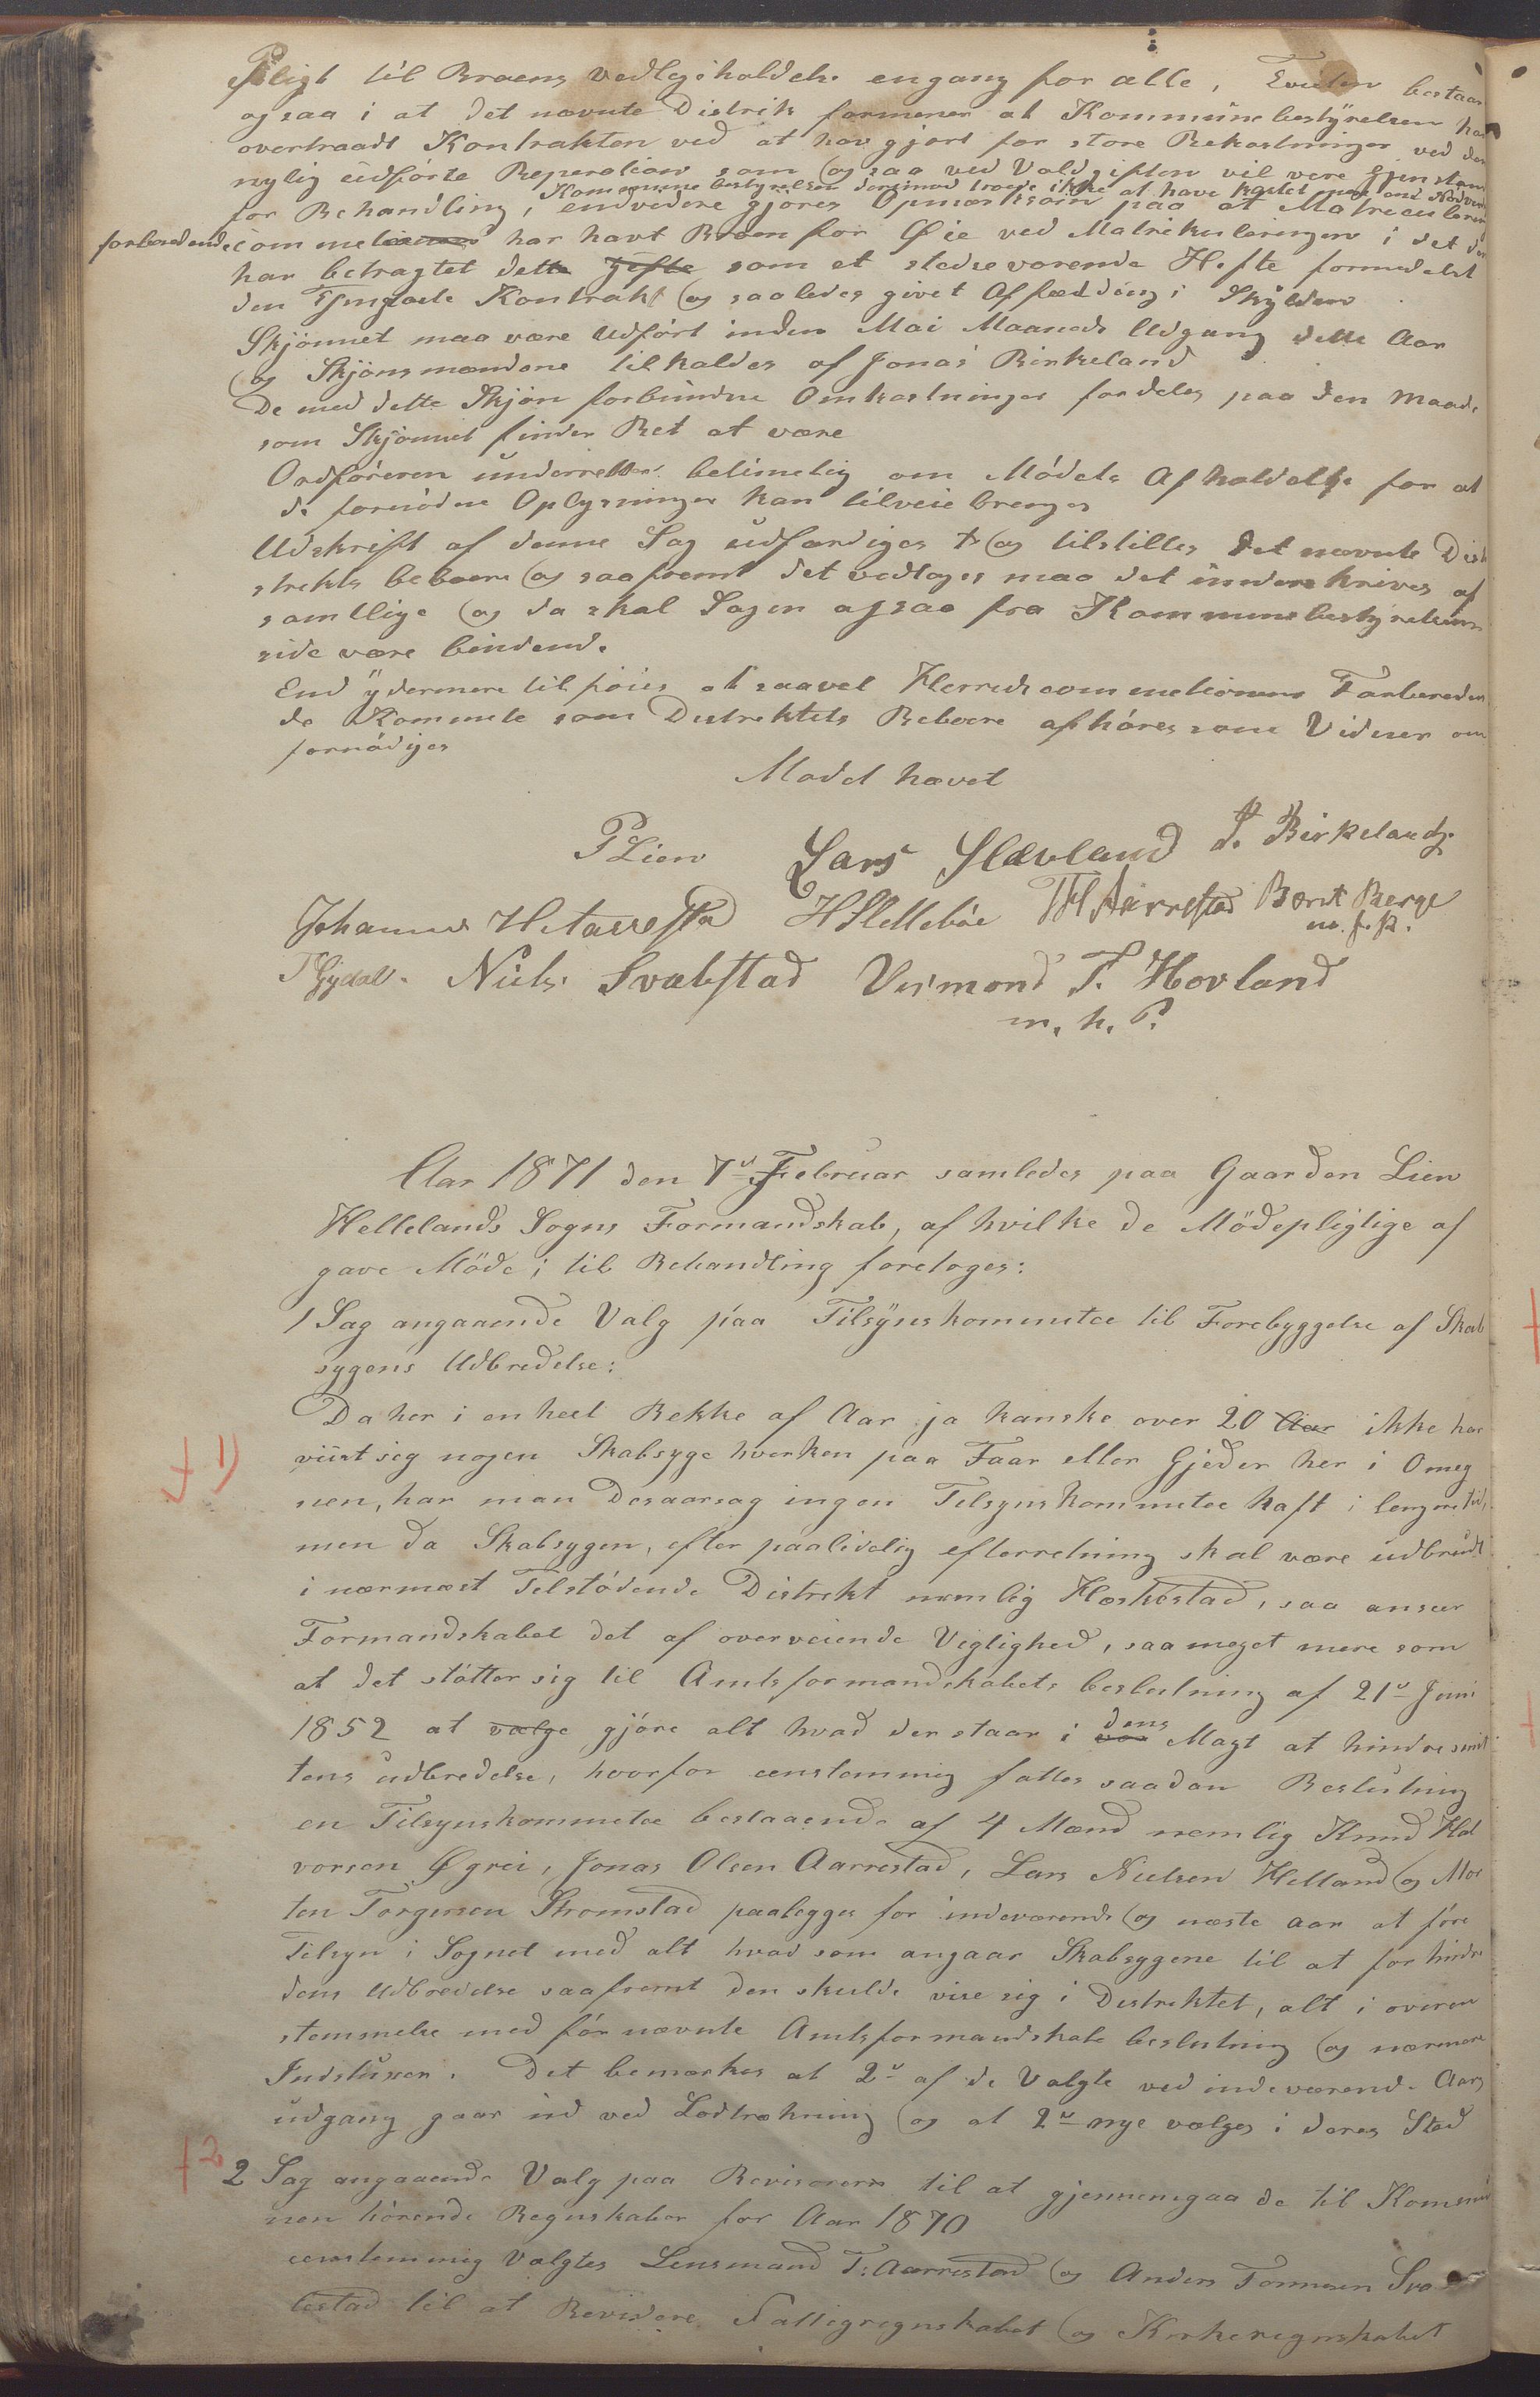 Pligt til Broens vedligeholdelse engang for alle, Tvisten bestaar
ogsaa i at det nævnte Distrik formener at Kommunebestyrelsen har
overtraadt Kontrakten ved at hav gjort for store Bekostninger ved den
nylig udførte Reperation som (og saa ved Voldgiften vil være Gjenstand
Kommunebestyrelsen derimod troede ikke at have kostet mere end Nødven
for Behandling, endvedere gjøres Opmærksom paa at Matreculerings
forberedende commetioner har havt Broen for Øie ved Matrikuleringen i det den
har betragtet dette Hefte som et stedsevarende Hefte formedelst
den Tinglæste Kontrakt (og saaledes givet Affældding i Skylden
Skjønnet maa være Udført inden Mai Maaneds Udgang dette Aar
(og Skjønsmændene tilkaldes af Jonas Birkeland
De med dette Skjøn forbundne Omkostninger fordeles paa den Maade
som Skjønnet finder Ret at være
Ordføreren underretter betimelig om Mødets Afholdelse for at
de fornødne Oplysninger kan tilveiebrenges
Udskrift af denne Sag udfærdiges (og tilstilles det nævnte Dis
strekts beboere (og saafremt det vedtages maa det underskrives af
samtlige (og da skal Sagen ogsaa fra Kommunebestyrelsens
side være bindende.
End ydermere tilføies at saavel Herredscommetionens Forbereden
de Kommete som Distrektets Beboere afhøres som Vidner om
fornødiges
Mødet hævet
P Lien Lars Slævland J. Birkeland
Johannes H. Aarrestad H Hellebøe TH Aarrestad Berent Berge
m. f. P.
T Gydal. Niels Svalestad Vermond T. Hovland
m. h. P.
Aar 1871 den 7de Februar samledes paa Gaarden Lien
Hellelands Sogns Formandskab, af hvilke de Mödepligtige af
gave Möde; til Behandling foretoges:
1 Sag angaaende Valg paa Tilsÿnskommitee til Forebyggelse af Skab
sygens Udbredelse:
Da her i en heel Rekke af Aar ja kanske over 20 Aar ikke har
viist sig nogen Skabsyge hverken paa Faar eller Gjeder her i Omeg
+ 1)
nen, har man Desaarsag ingen Tilsynskommitee haft i lengre tid,
men da Skabsygen, efter paalidelig efterretning skal være udbrudt
i nærmest Tilstødende Distrekt nemlig Heskestad, saa anseer
Formandskabet det af overveiende Vigtighed, saa meget mere som
at det støtter sig til Amtsformandskabets beslutning af 21de Juni
1852 at vælge gjøre alt hvad der staar i vor dens Magt at hindre smit
tens udbredelse, hvorfor eenstemmig fattes saadan Beslutning
en Tilsynskommetee bestaaende af 4 Mænd nemlig Knud Hal
vorsen Øgrei, Jonas Olsen Aarrestad, Lars Nielsen Helland (og Mor
ten Torgersen Stromstad paalegges for indeværende (og næste aar at føre
Tilsyn i Sognet med alt hvad som angaar Skabsygene til at forhindre
dens Udbredelse saafremt den skulde vise sig i Destriktet, alt i overen
stemmelse med før nævnte Amtsformandskabs beslutning (og nærmere
Indstuxen. Det bemærkes at 2de af de Valgte ved indeværende Aars
udgang gaar ud ved Lodtrækning (og at 2de nye vælges i deres Sted
+ 2
2 Sag angaaende Valg paa Revisorern til at gjennemgaa de til Kommu
nen hörende Regnskaber for Aar 1870
eenstemmig Valgtes Lensmand T. Aarrestad (og Anders Tonnesen Sva
lestad til at Revidere Fattigregnskabet (og Kirkeregnskabet